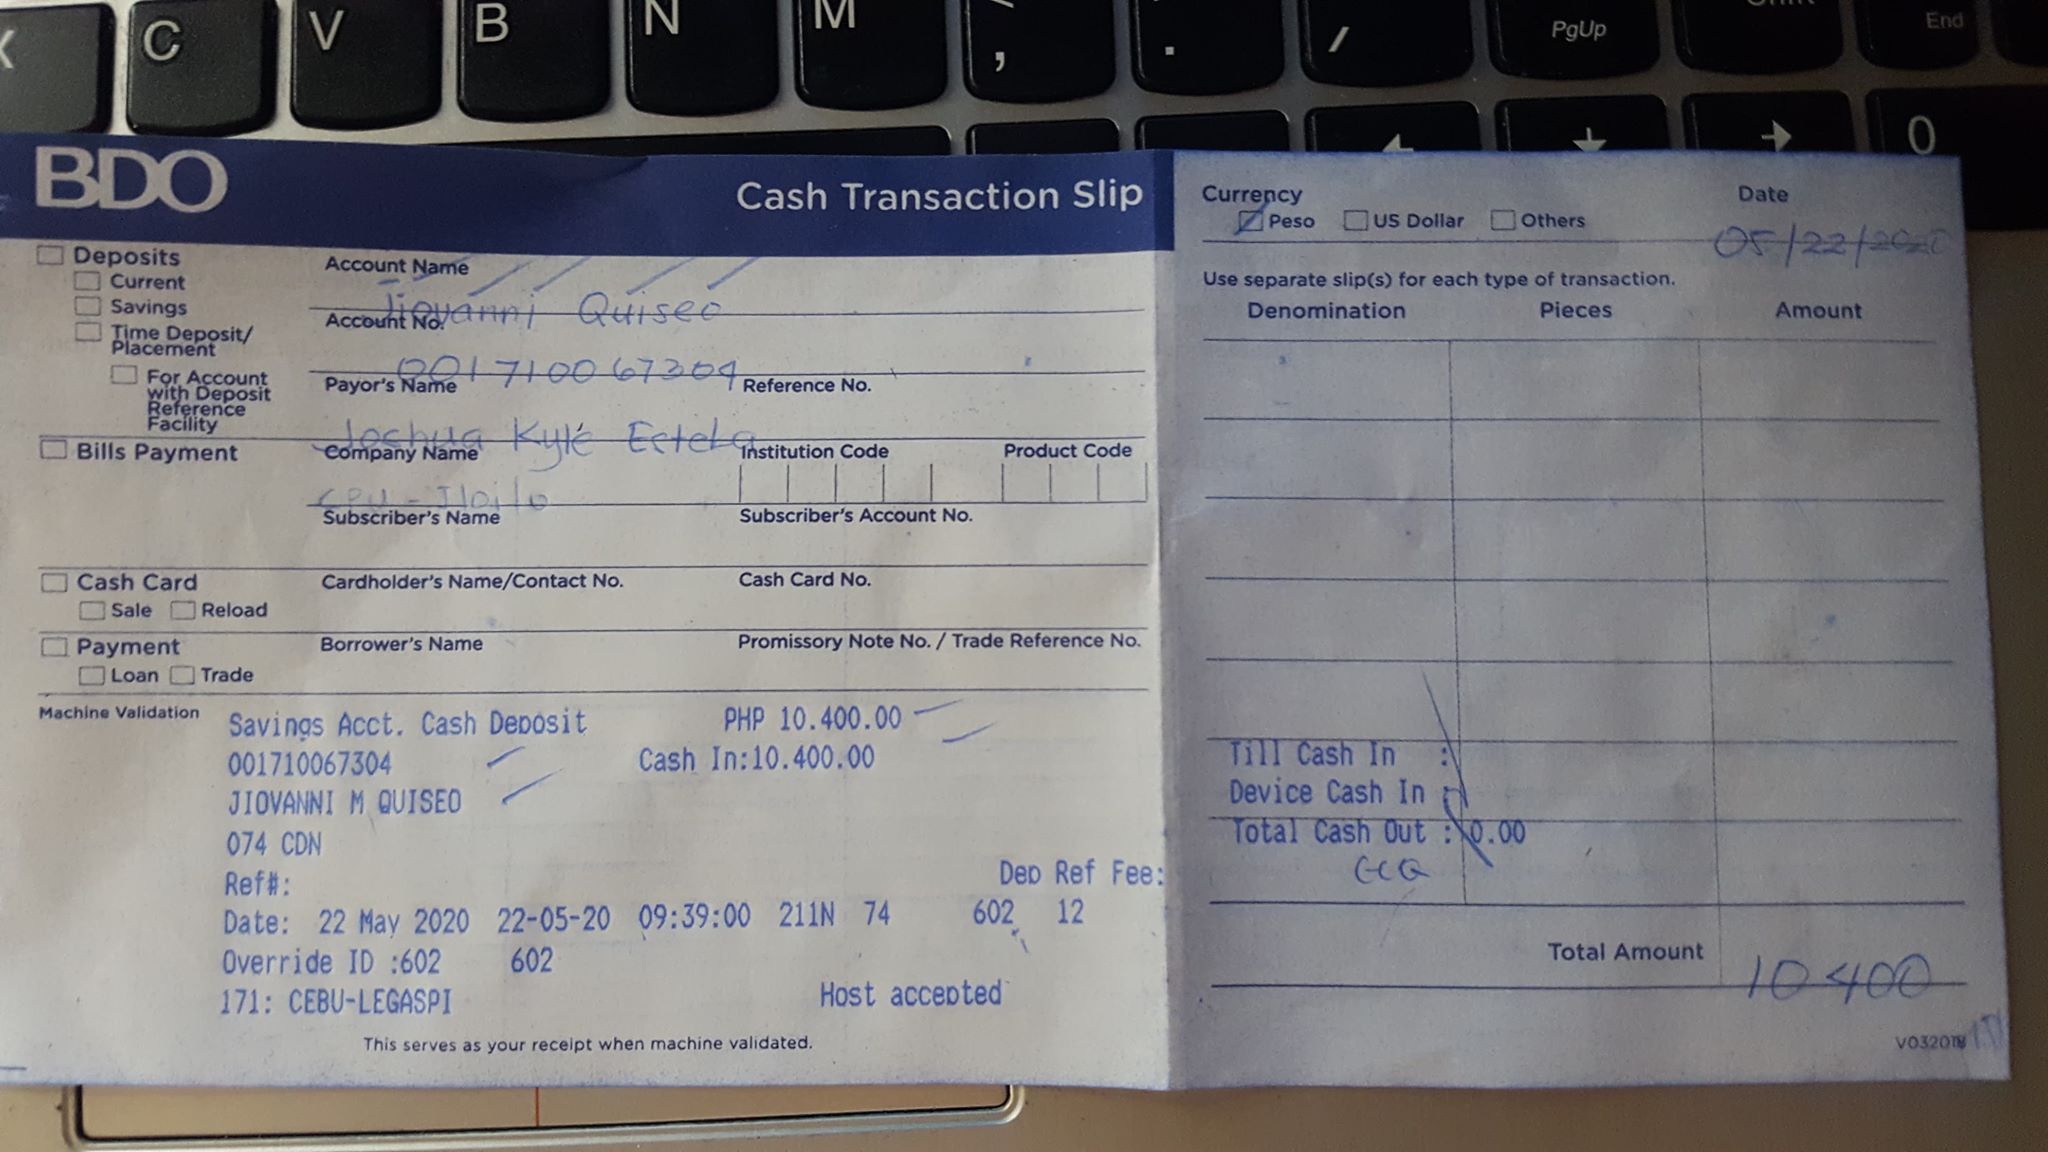 X C V B N M , . / PgUp End
0
BDO
Cash Transaction Slip
Deposits
Current
Savings
Time Deposit/
Placement
For Account
with Deposit
Reference
Facility
Bills Payment
Cash Card
Sale Reload
Payment
Loan Trade
Account Name
Jiovanni Quiseo
Account No.
001710067304
Payor's Name Reference No.
Joshua Kyle Estela
Company Name Institution Code Product Code
CPU - Iloilo
Subscriber's Name Subscriber's Account No.
Cardholder's Name/Contact No. Cash Card No.
Borrower's Name Promissory Note No. / Trade Reference No.
Machine Validation
Savings Acct. Cash Deposit PHP 10.400.00
001710067304 Cash In:10.400.00
JIOVANNI M QUISEO
074 CDN
Ref#: Dep Ref Fee:
Date: 22 May 2020 22-05-20 09:39:00 211N 74 602 12
Override ID :602 602
171: CEBU-LEGASPI Host accepted
This serves as your receipt when machine validated.
Currency Date
Peso US Dollar Others
05/22/2020
Use separate slip(s) for each type of transaction.
Denomination Pieces Amount
Till Cash In :
Device Cash In
Total Cash Out : 0.00
Total Amount
10 400
V032018